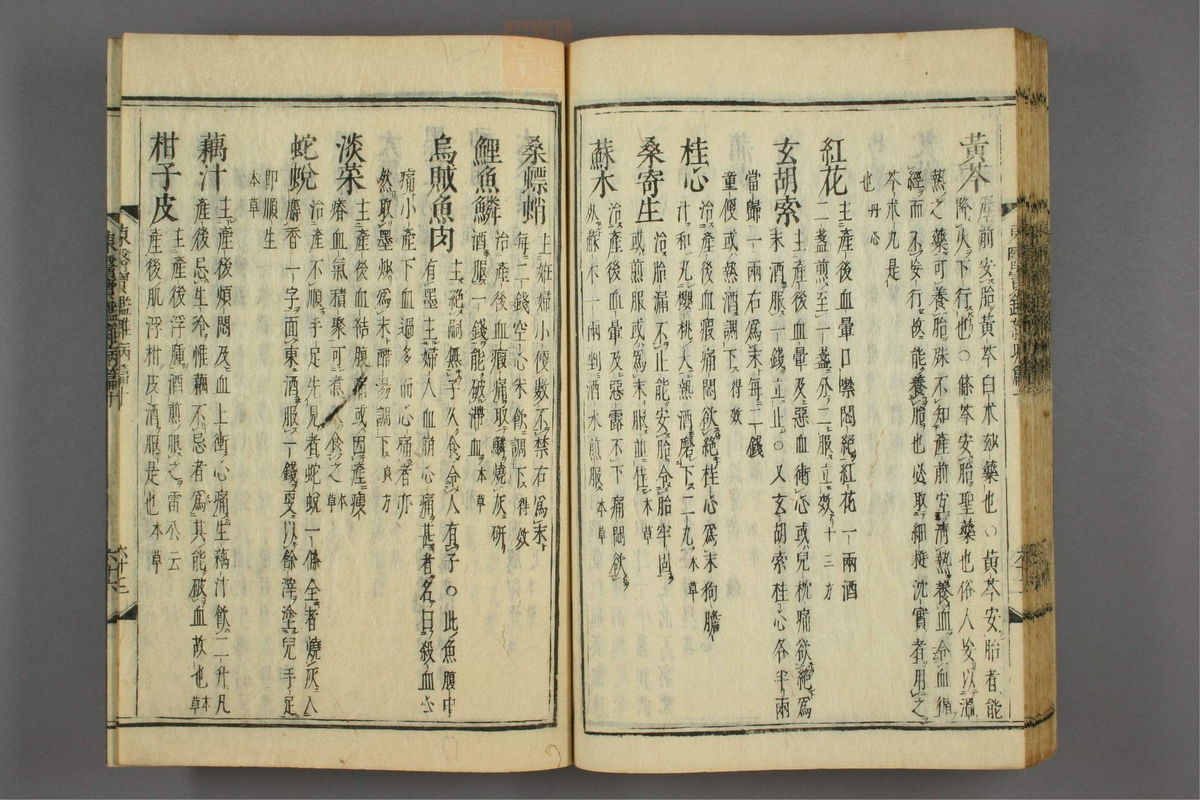 黃芩 產前安胎黃芩白朮玅藥也○黃芩安胎者能
降火下行也○條芩安胎聖藥也俗人妄以溫
熱之藥可養胎殊不知產前宜清熱養血令血循
經而不妄行故能養胎也必取細挺沈實者用之
芩朮丸是
也丹心
紅花 主產後血暈口噤悶絕紅花一兩酒
二盞煎至一盞分二服立效十三方
玄胡索 主產後血暈及惡血衝心或兒枕痛欲絕爲
末酒服一錢立止○又玄胡索桂心各半兩
當歸一兩右爲末每二錢
童便或熱酒調下得效
桂心 治產後血瘕痛悶欲絕桂心爲末狗膽
汁和丸櫻桃大熱酒磨下二丸本草
桑寄生 治胎漏不止能安胎令胎牢固
或煎服或爲末服並佳本草
蘇木 治產後血暈及惡露不下痛悶欲
死蘇木一兩剉酒水煎服本草
桑螵蛸 主妊婦小便數不禁右爲末
每二錢空心米飮調下得效
鯉魚鱗 治產後血瘕痛取鱗燒灰硏
酒服一錢能破滯血本草
烏賊魚肉 主絕嗣無子久食令人有子○此魚腹中
有墨主婦人血崩心痛甚者名曰殺血心
痛小產下血過多而心痛者亦
然取墨炒爲末醋湯調下良方
淡菜 主產後血結腹痛或因產瘦
瘠血氣積聚可煮食之本草
蛇蛻 治產不順手足先見者蛇蛻一條全者燒灰入
麝香一字面東酒服一錢更以餘滓塗兒手足
即順生
本草
藕汁 主產後煩悶及血上衝心痛生藕汁飮二升凡
產後忌生冷惟藕不忌者爲其能破血故也本草
柑子皮 主產後浮腫酒煎服之雷公云
產後肌浮柑皮酒服是也本草
東醫寶鑑雜病篇十
六十二